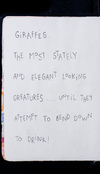 GIRAFFES.
THE MOST STATELY
AND ELEGANT LOOKING
CREATURES... UNTIL THEY
ATTEMPT TO BEND DOWN
TO DRINK!